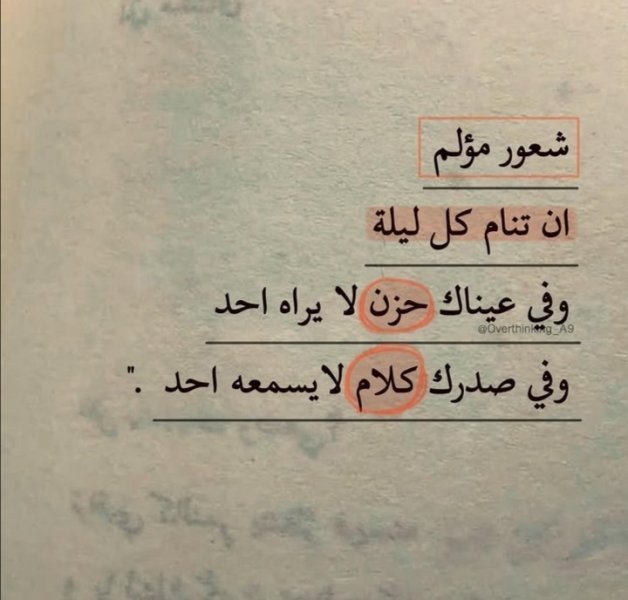 شعور مؤلم
ان تنام كل ليلة
وفي عيناك حزن لا يراه احد
@Overthinking_A9
وفي صدرك كلام لايسمعه احد ."